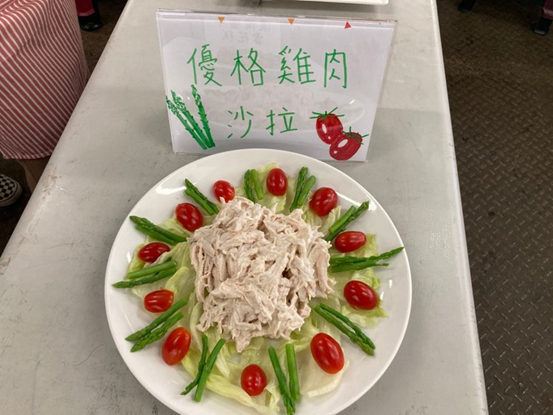 優格雞肉
沙拉